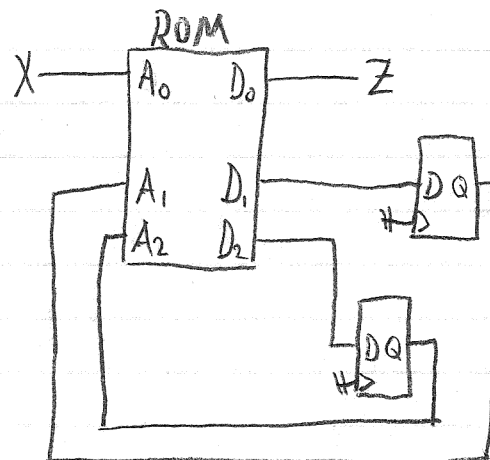 ROM
X A0 D0 Z
A1 D1 D Q
A2 D2
D Q